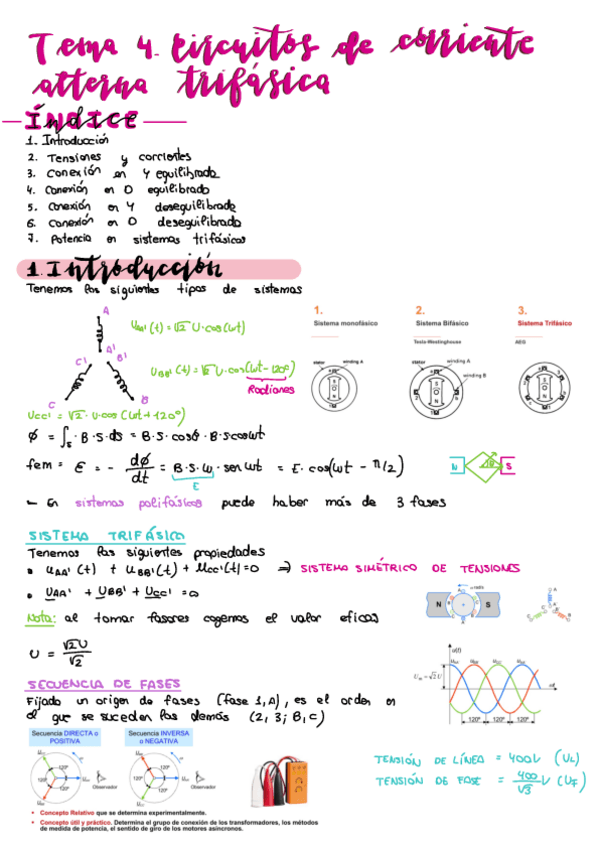 Tema 4. Circuitos de corriente
alterna trifásica
ÍNDICE
1. Introducción
2. Tensiones y corrientes
3. Conexión en Y equilibrada
4. Conexión en D equilibrado
5. Conexión en Y desequilibrada
6. Conexión en D desequilibrado
7. Potencia en sistemas trifásicos
1. Introducción
Tenemos los siguientes tipos de sistemas
1. 2. 3.
Sistema monofásico Sistema Bifásico Sistema Trifásico
Tesla-Westinghouse AEG
A
A'
C' B'
C B
U_AA'(t) = √2 U·cos(wt)
U_BB'(t) = √2 U·cos(wt-120º)
Radianes
U_CC' = √2·U·cos(wt+120º)
stator winding A
stator winding A
winding B
S
N
ϕ = ∫s B·S·ds = B·S·cosϕ·B·S coswt
fem = E = - dϕ/dt = B·S·w·senwt = E·cos(wt - π/2)
E
N S
- En sistemas polifásicos puede haber más de 3 fases
SISTEMA TRIFÁSICO
Tenemos las siguientes propiedades
• u_AA'(t) + u_BB'(t) + u_CC'(t) = 0 ⇒ SISTEMA SIMÉTRICO DE TENSIONES
• U_AA' + U_BB' + U_CC' = 0
N S
Nota: al tomar fasores cogemos el valor eficas
U = √2U/√2
u(t)
U_m = √2 U
120º 120º 120º
SECUENCIA DE FASES
Fijado un origen de fases (fase 1, A), es el orden en
el que se suceden las demás (2, 3; B, C)
Secuencia DIRECTA o
POSITIVA
Secuencia INVERSA
o NEGATIVA
120º
120º
120º
Observador
120º
120º
120º
Observador
TENSIÓN DE LÍNEA = 400V (U_L)
TENSIÓN DE FASE = 400/√3 V (U_F)
• Concepto Relativo que se determina experimentalmente.
• Concepto útil y práctico. Determina el grupo de conexión de los transformadores, los métodos
de medida de potencia, el sentido de giro de los motores asíncronos.